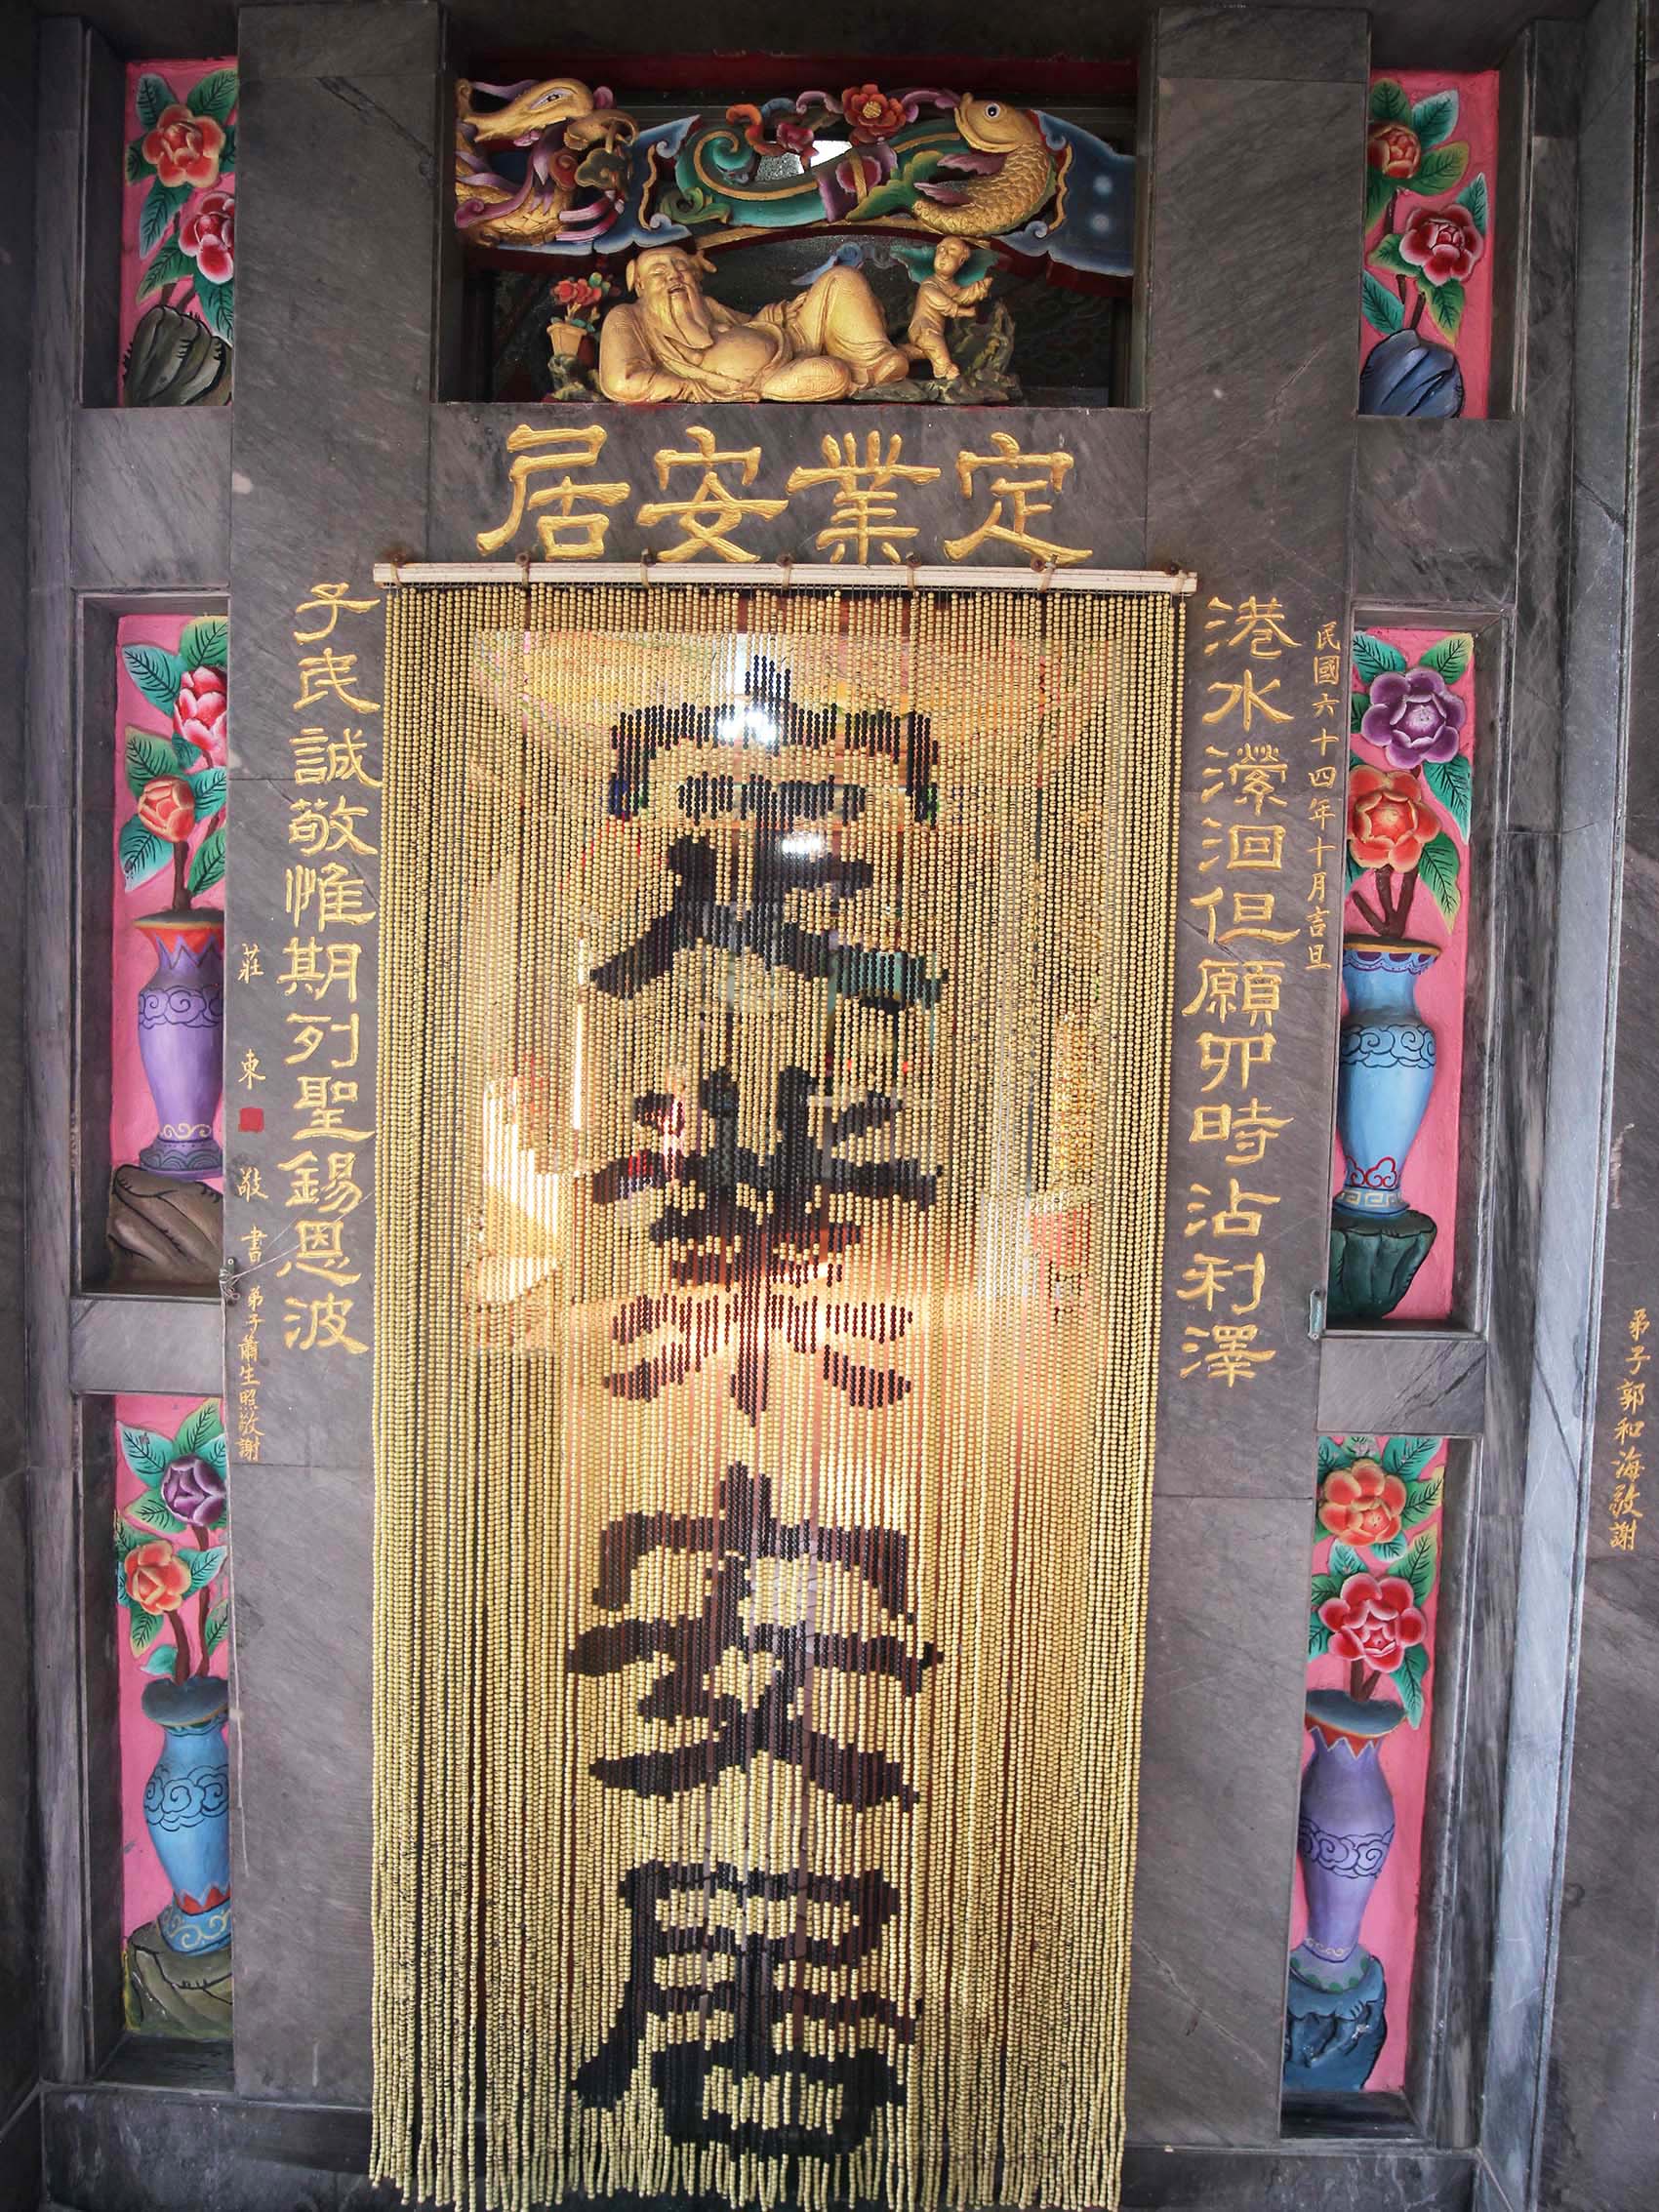 定業安居
弟子郭和海敬謝
民國六十四年十月吉旦
港水瀠洄但願卯時沾利澤
定業安居
子民誠敬惟期列聖錫恩波
莊東敬書
弟子蕭生照敬謝